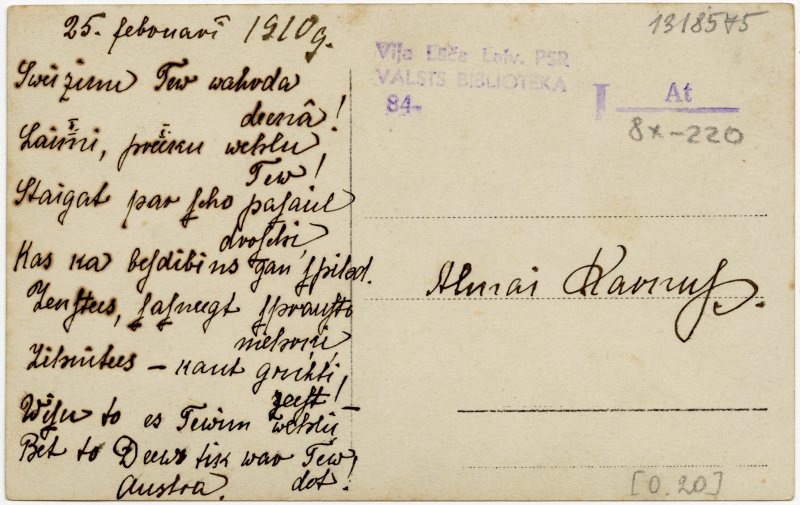 25. februarī 1910 g.
Sweizinu Tew wahrda
deenâ!
Laimi, preeku wehlu
Tew!
Staigat par scho pasaul
droschi,
Kas ka besdibins gan spihd.
Zenstees, sasneegt sprausto
mehrķi,
Zihnitees – kaut gruhti
zeest!
Wisu to es Tewim wehlu –
Bet to Deews tik war Tew
dot!
Austra.
1318575
Vīļa Lāča Latv. PSR
VALSTS BIBLIOTEKA
84-
I At
8x-220
Almai Kaonus.
[0.20]